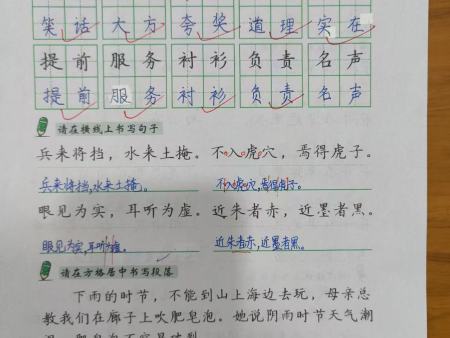 笑话 大方 夸奖 道理 实在
提前 服务 衬衫 负责 名声
提前 服务 衬衫 负责 名声
请在横线上书写句子
兵来将挡，水来土掩。不入虎穴，焉得虎子。
兵来将挡，水来土掩。 不入虎穴，焉得虎子。
眼见为实，耳听为虚。近朱者赤，近墨者黑。
眼见为实，耳听为虚。 近朱者赤，近墨者黑。
请在方格居中书写段落
下雨的时节，不能到山上海边去玩，母亲总
教我们在廊子上吹肥皂泡。她说阴雨时节天气潮